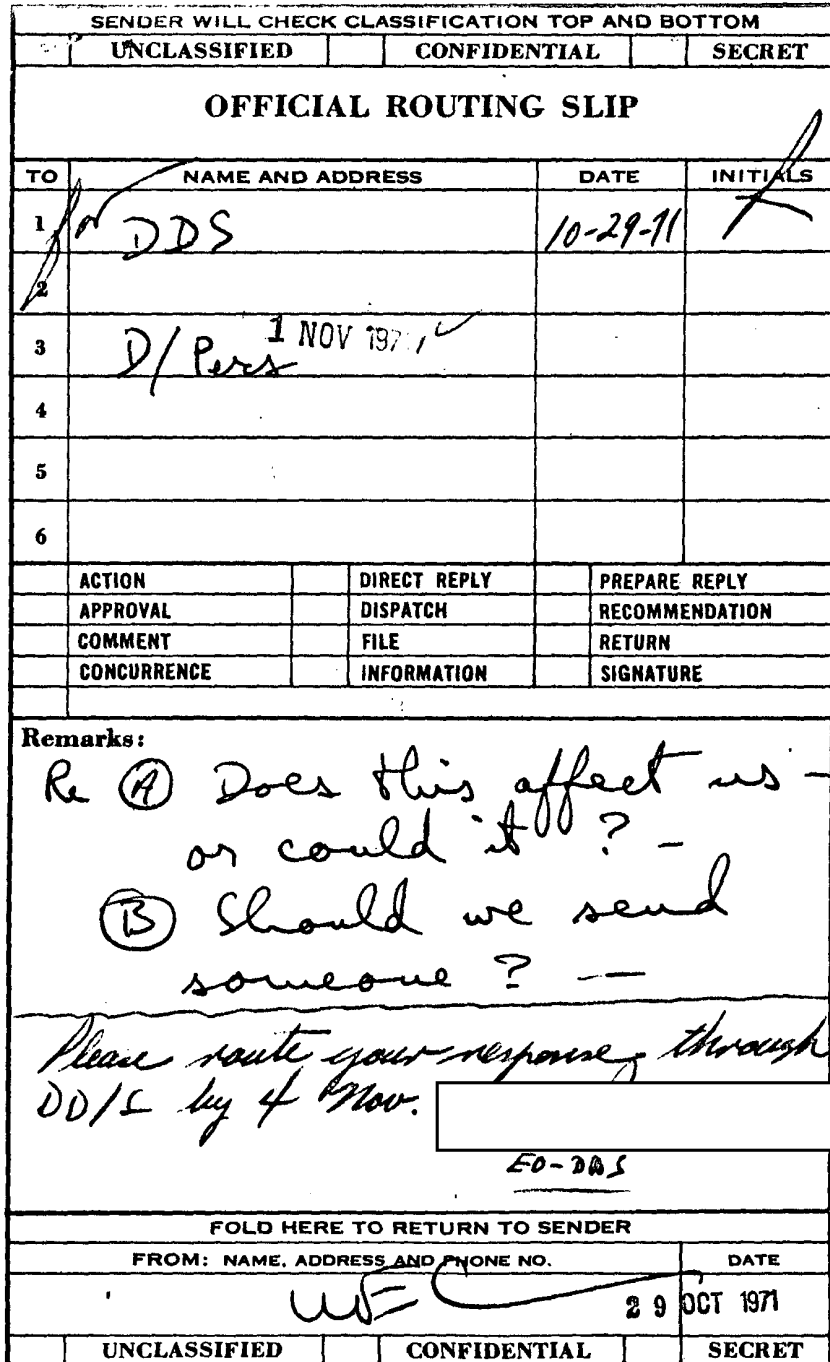 SENDER WILL CHECK CLASSIFICATION TOP AND BOTTOM
UNCLASSIFIED CONFIDENTIAL SECRET
OFFICIAL ROUTING SLIP
TO NAME AND ADDRESS DATE INITIALS
1 DDS 10-29-71
2
3 D/Pers 1 NOV 1971
4
5
6
ACTION DIRECT REPLY PREPARE REPLY
APPROVAL DISPATCH RECOMMENDATION
COMMENT FILE RETURN
CONCURRENCE INFORMATION SIGNATURE
Remarks:
Re (A) Does this affect us -
or could it? -
(B) Should we send
someone? —
Please route your response through
DD/S by 4 Nov.
EO-DDS
FOLD HERE TO RETURN TO SENDER
FROM: NAME, ADDRESS AND PHONE NO. DATE
29 OCT 1971
UNCLASSIFIED CONFIDENTIAL SECRET